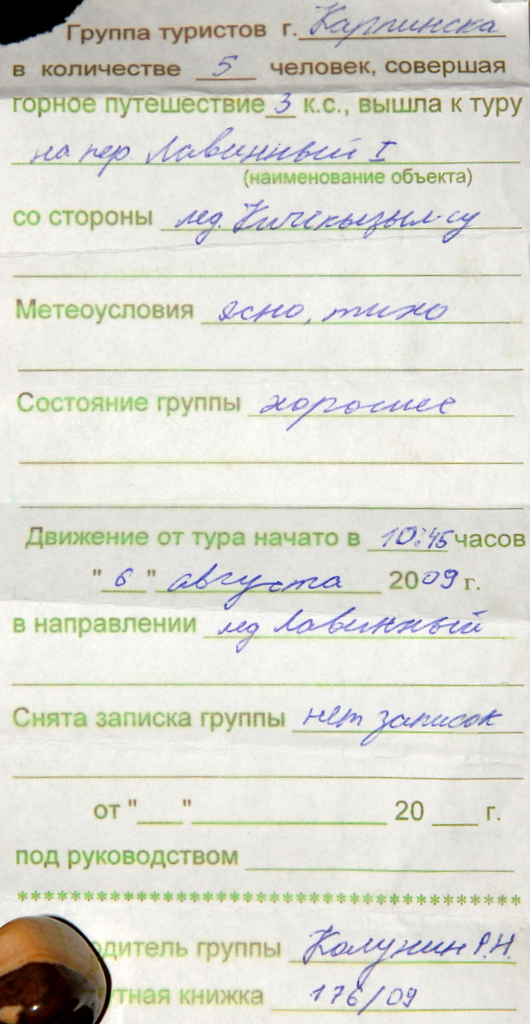 Группа туристов г. Карпинска
в количестве 5 человек, совершая
горное путешествие 3 к.с., вышла к туру
на пер Лавинный I
(наименование объекта)
со стороны лед. Кичекызыл-су
Метеоусловия ясно, тихо
Состояние группы хорошее
Движение от тура начато в 10:45 часов
"6" августа 2009 г.
в направлении лед Лавинный
Снята записка группы нет записок
от "___" ____________ 20 ___ г.
под руководством
************************************
одитель группы Колунин Р.Н.
утная книжка 176/09